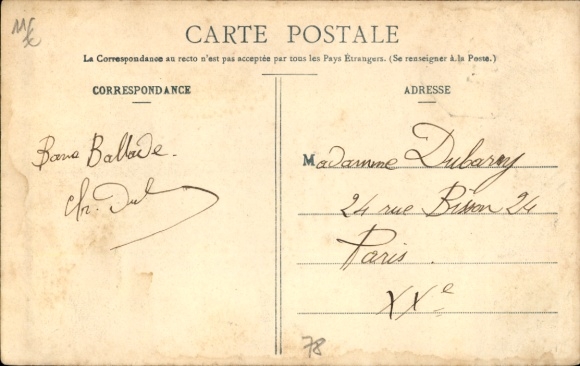 CARTE POSTALE
La Correspondance au recto n'est pas acceptée par tous les Pays Étrangers. (Se renseigner à la Poste.)
CORRESPONDANCE
Bonne Ballade.
Ch. Dub
ADRESSE
Madamme Dubarry
24 rue Bisson 24
Paris.
XXe
78